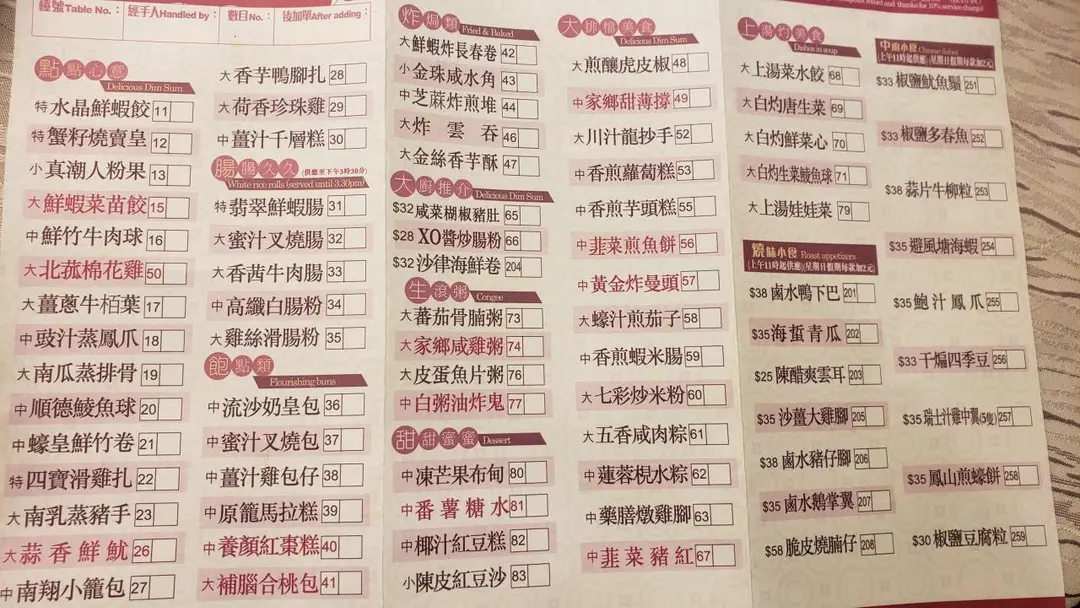 檯號Table No.:
經手人Handled by:
數目No.:
後加單After adding:
點點心意
Delicious Dim Sum
特 水晶鮮蝦餃 11
特 蟹籽燒賣皇 12
小 真潮人粉果 13
大 鮮蝦菜苗餃 15
中 鮮竹牛肉球 16
大 北菰棉花雞 50
大 薑蔥牛栢葉 17
中 豉汁蒸鳳爪 18
大 南瓜蒸排骨 19
中 順德鯪魚球 20
中 蠔皇鮮竹卷 21
特 四寶滑雞扎 22
大 南乳蒸豬手 23
大 蒜香鮮魷 26
中 南翔小籠包 27
大 香芋鴨腳扎 28
大 荷香珍珠雞 29
中 薑汁千層糕 30
腸腸久久 (供應至下午3時30分)
White rice rolls (served until 3.30pm)
特 翡翠鮮蝦腸 31
大 蜜汁叉燒腸 32
大 香茜牛肉腸 33
中 高纖白腸粉 34
大 雞絲滑腸粉 35
飽點類
Flourishing buns
中 流沙奶皇包 36
中 蜜汁叉燒包 37
中 薑汁雞包仔 38
中 原籠馬拉糕 39
中 養顏紅棗糕 40
大 補腦合桃包 41
炸焗類
Fried & Baked
大 鮮蝦炸長春卷 42
小 金珠咸水角 43
中 芝蔴炸煎堆 44
大 炸雲吞 46
大 金絲香芋酥 47
大廚推介
Delicious Dim Sum
$32 咸菜胡椒豬肚 65
$28 XO醬炒腸粉 66
$32 沙律海鮮卷 204
生滾粥
Congee
大 蕃茄骨腩粥 73
大 家鄉咸雞粥 74
大 皮蛋魚片粥 76
中 白粥油炸鬼 77
甜甜蜜蜜
Dessert
中 凍芒果布甸 80
中 番薯糖水 81
中 椰汁紅豆糕 82
小 陳皮紅豆沙 83
大排檔美食
Delicious Dim Sum
大 煎釀虎皮椒 48
中 家鄉甜薄撐 49
大 川汁龍抄手 52
中 香煎蘿蔔糕 53
中 香煎芋頭糕 55
中 韭菜煎魚餅 56
中 黃金炸曼頭 57
大 蠔汁煎茄子 58
中 香煎蝦米腸 59
大 七彩炒米粉 60
大 五香咸肉粽 61
中 蓮蓉梘水粽 62
中 藥膳燉雞腳 63
中 韭菜豬紅 67
上湯灼美食
Dishes in soup
大 上湯菜水餃 68
大 白灼唐生菜 69
大 白灼鮮菜心 70
大 白灼生菜鯪魚球 71
大 上湯娃娃菜 79
燒味小食 Roast appetizers
(上午11時起供應)(星期日假期每款加2元)
$38 鹵水鴨下巴 201
$35 海蜇青瓜 202
$25 陳醋爽雲耳 203
$35 沙薑大雞腳 205
$38 鹵水豬仔腳 206
$35 鹵水鵝掌翼 207
$58 脆皮燒腩仔 208
中廚小食 Chinese dishes
(上午11時起供應)(星期日假期每款加2元)
$33 椒鹽魷魚鬚 251
$33 椒鹽多春魚 252
$38 蒜片牛柳粒 253
$35 避風塘海蝦 254
$35 鮑汁鳳爪 255
$33 干煸四季豆 256
$35 瑞士汁雞中翼(5隻) 257
$35 鳳山煎蠔餅 258
$30 椒鹽豆腐粒 259